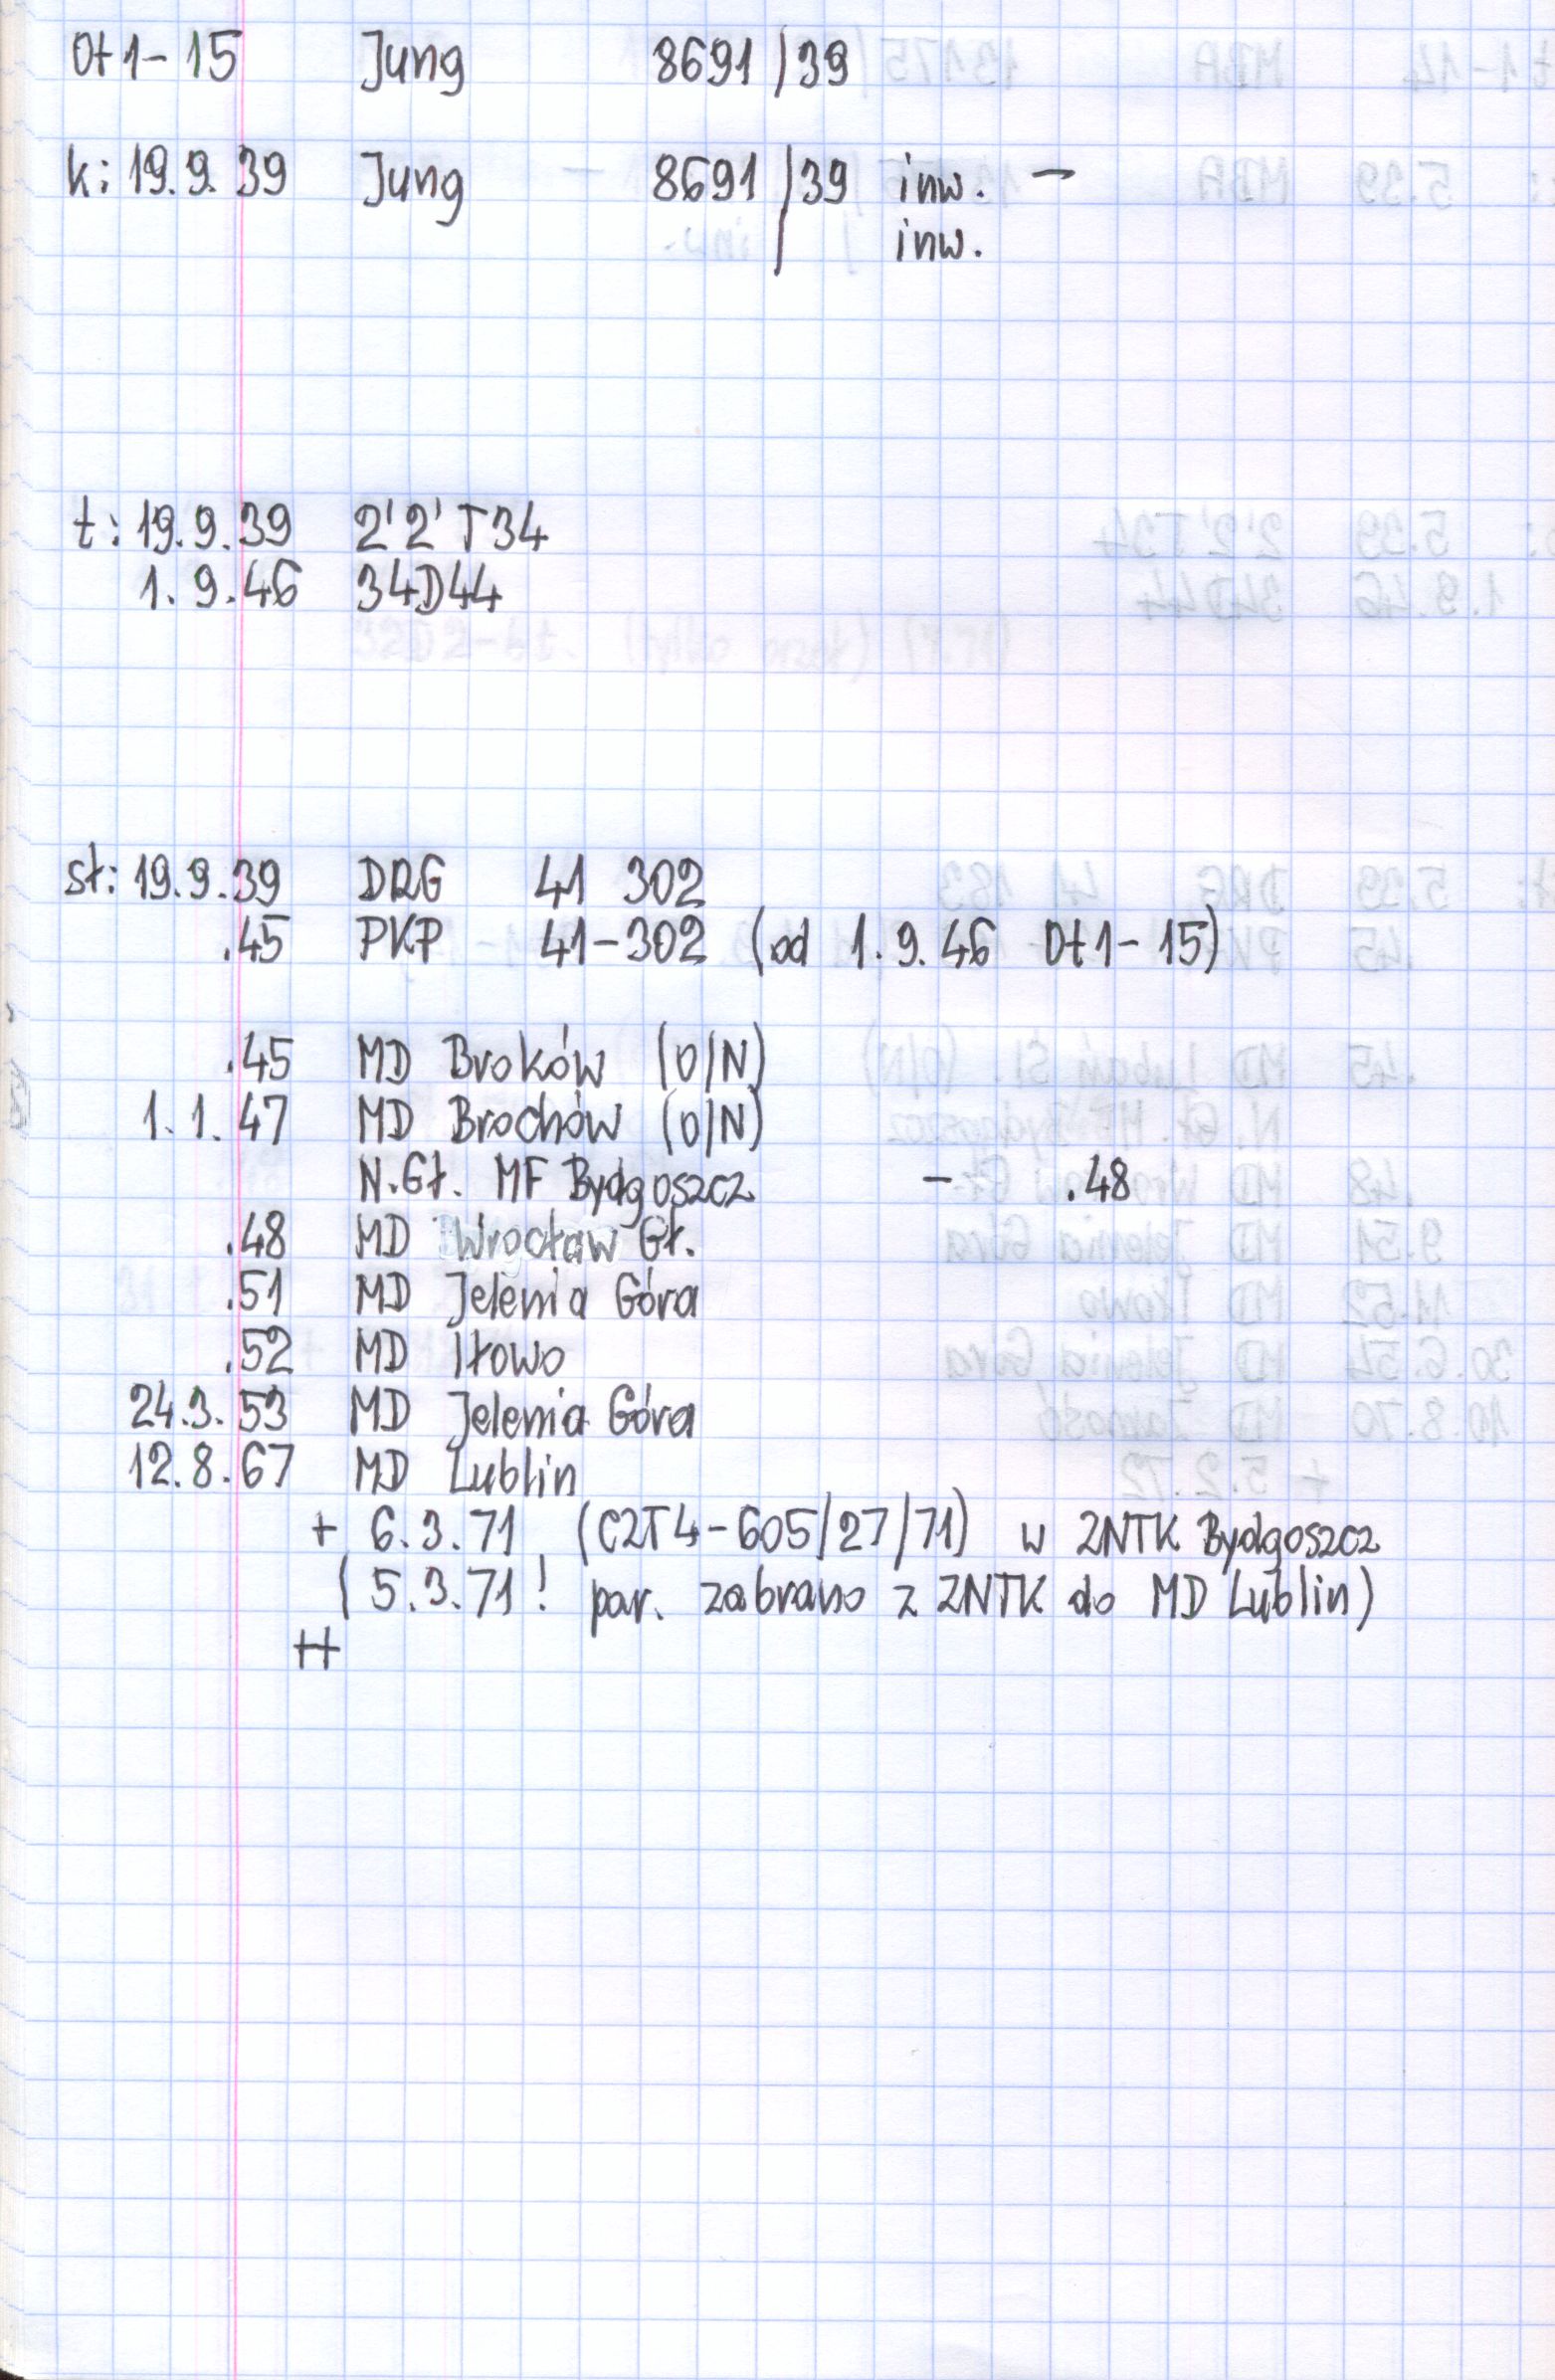 Ot1-15 Jung 8691/39
k: 19.9.39 Jung 8691/39 inw. -
/ inw.
t: 19.9.39 2'2'T34
1.9.46 34D44
sł: 19.9.39 DRG 41 302
.45 PKP 41-302 (od 1.9.46 Ot1-15)
.45 MD Broków (O/N)
1.1.47 MD Brochów (O/N)
N.Gł. MF Bydgoszcz - .48
.48 MD Wrocław Gł.
.51 MD Jelenia Góra
.52 MD Iłowo
24.3.53 MD Jelenia Góra
12.8.67 MD Lublin
+ 6.3.71 (CZT4-605/27/71) w ZNTK Bydgoszcz
(5.3.71! par. zabrano z ZNTK do MD Lublin)
++